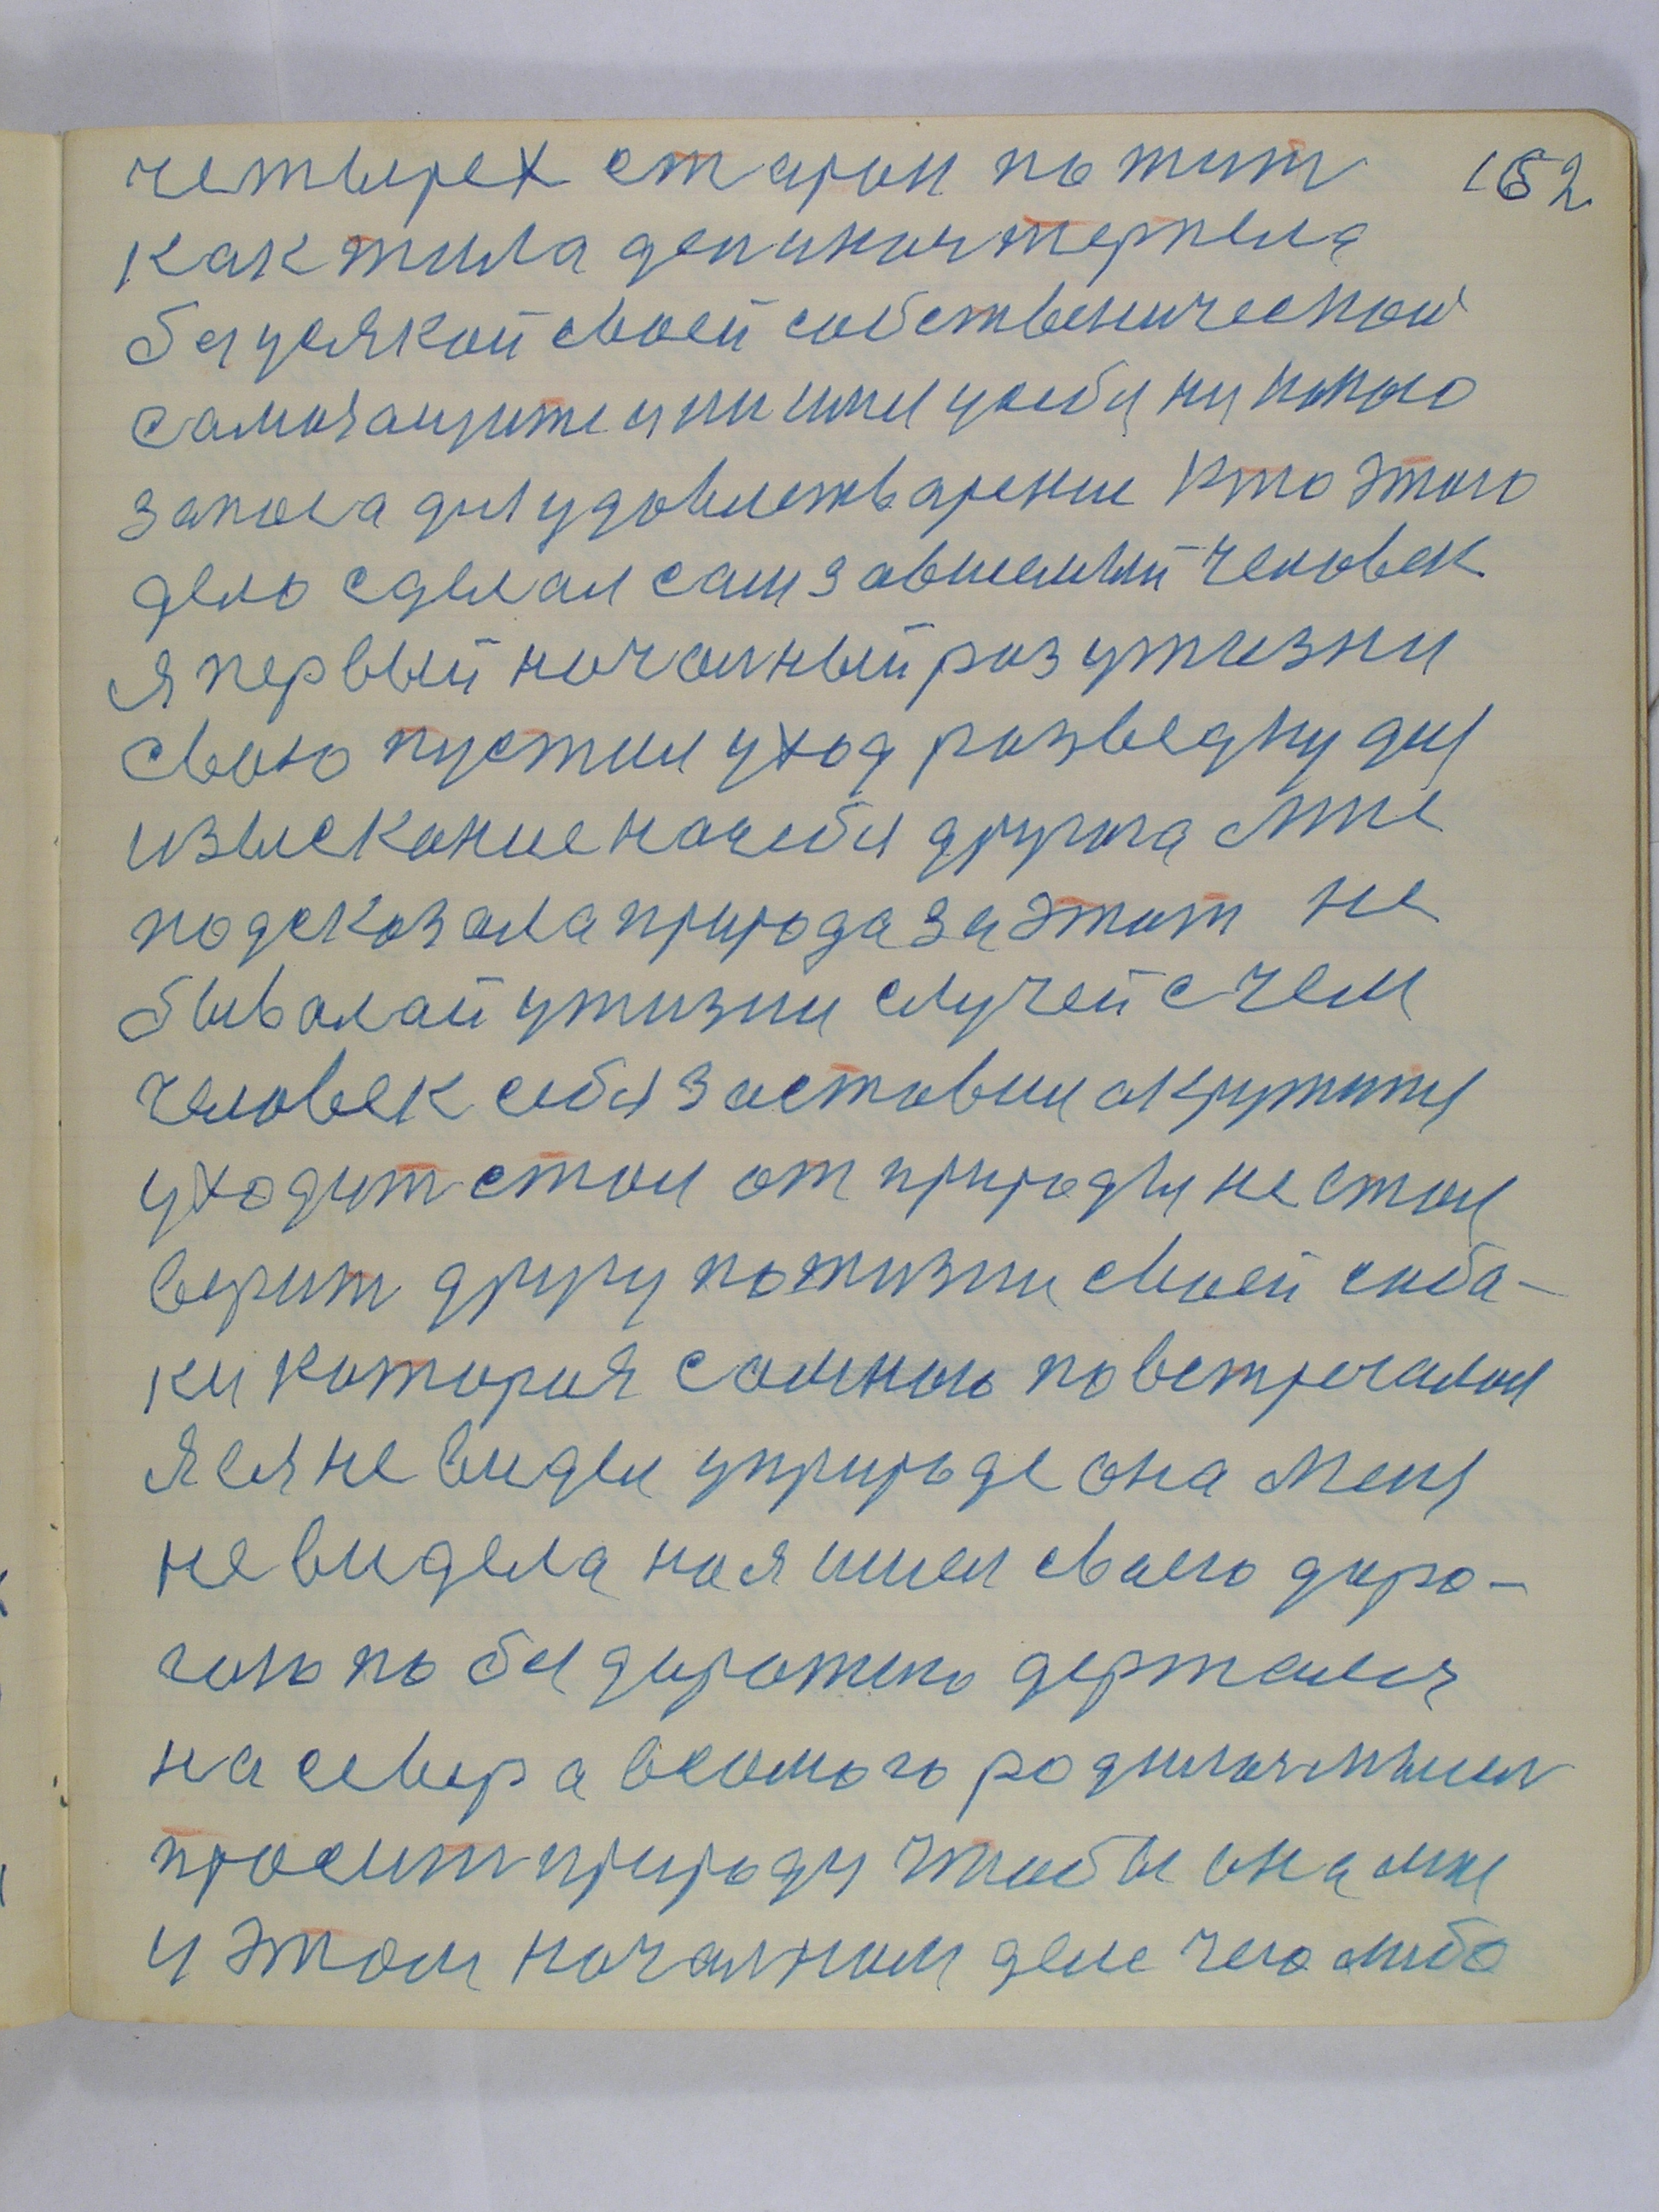 четырех старон по жит 152
как жила до и ночь терпела
без усякой своей собственической
самозащите и ни имел у себя ни какого
запоса для удовлетварение Кто этого
дело сделал сам зависимый человек
я первый начальный раз у жизни
своею пустил уход разведку для
изыскание на себя друга мне
подсказала природа за этот не
бывалай у жизни случей с чем
человек себя заставил акружится
уходит стал от природы не стал
верит другу по жизни своей саба-
ки которая самною повстречалася
Я ея не видел у природе она меня
не видела но я шел своею даро-
гою по без дарожью держался
на север а всамого родилася мысл
просит природу чтобы она мне
у этом началном деле чего либо